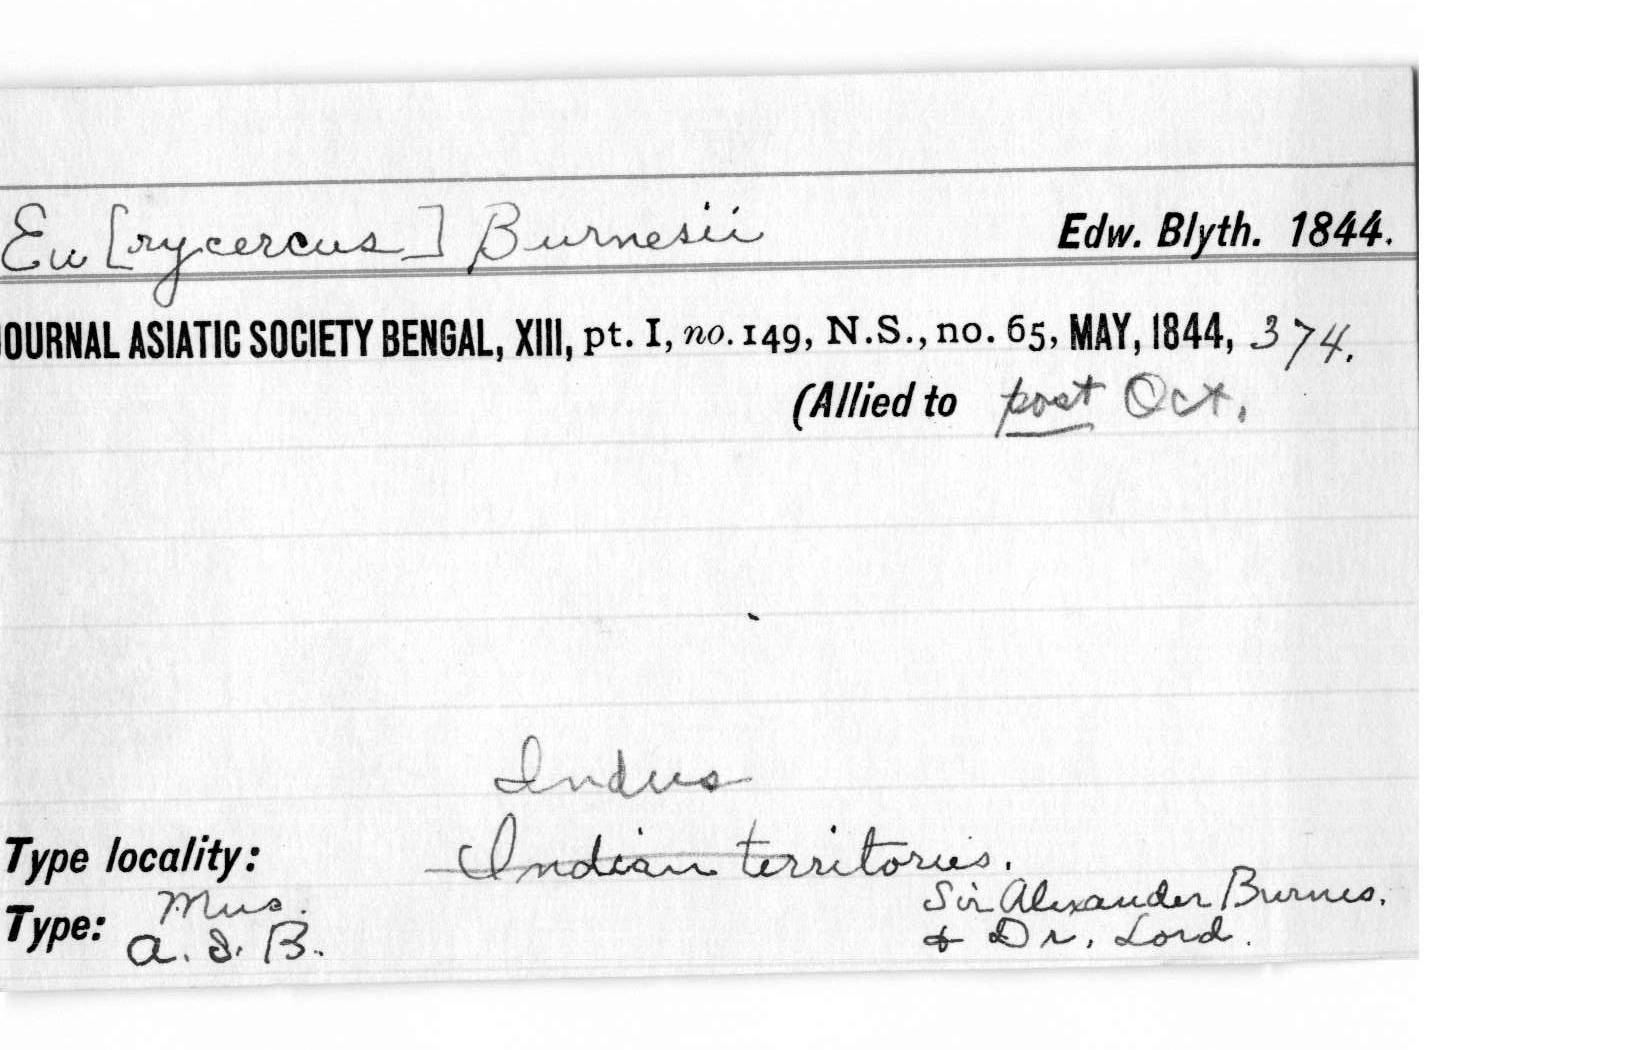 Eu[rycercus] Burnesii Edw. Blyth. 1844.
JOURNAL ASIATIC SOCIETY BENGAL, XIII, pt. I, no. 149, N.S., no. 65, MAY, 1844, 374.
(Allied to post Oct.
Indus
Type locality: Indian territories.
Type: Mus. A. S. B. Sir Alexander Burnes.
& Dr. Lord.